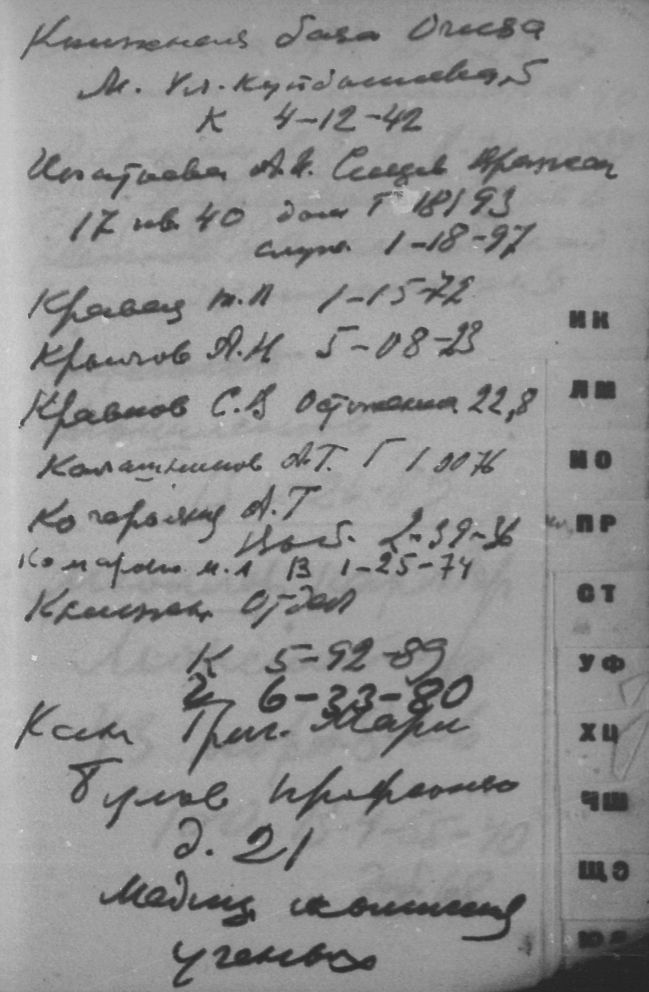 Книжная база Огиза
М. Ул. Куйбышева, 5
К 4-12-42
Игнатьева А.
17 кв. 40 дом Г 18193
служ. 1-18-97
Кравец Т.П 1-15-72
Крылов А.Н 5-08-23
Кравков С.В Остоженка 22,8
Калашников А.Т. Г 1 0076
Кочарянц А.Т
2-39-36
Комаров м.л В 1-25-74
Книжн. Отдел
К 5-92-89
6-33-80
Кан Григ. Марк
д. 21
Медиц комиссия
ученых
ИК
ЛМ
НО
ПР
СТ
УФ
ХЦ
ЧШ
ЩЭ
ЮЯ